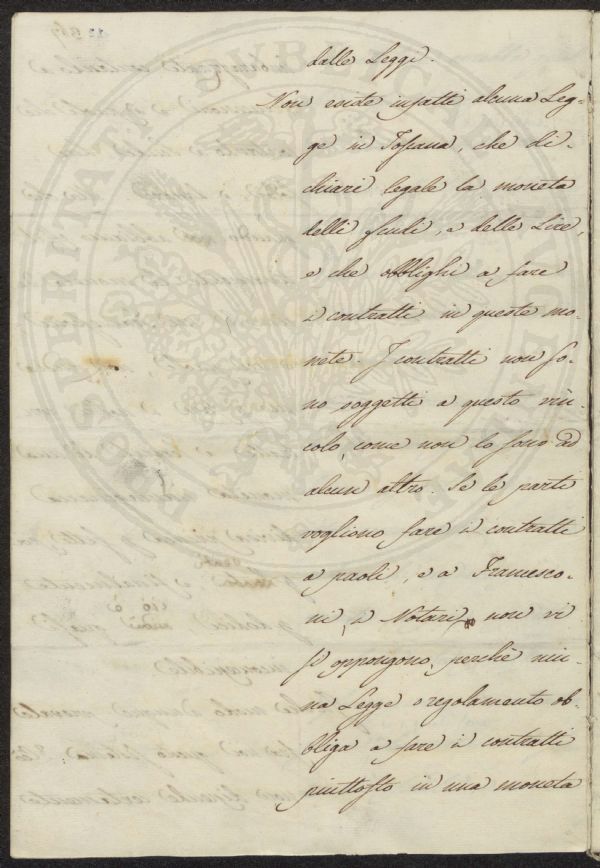 dalle Leggi.
Non esiste infatti alcuna Leg-
ge in Toscana, che di-
chiari legale la moneta
delli scudi, e delle Lire,
e che obblighi a fare
i contratti in queste mo-
nete. I contratti non so-
no soggetti a questo vin-
colo, come non lo sono ad
alcun altro. Se le parti
vogliono fare i contratti
a paoli, e a Francesco-
ni, i Notari non vi
si oppongono, perchè niu-
na Legge o regolamento ob-
bliga a fare i contratti
piuttosto in una moneta